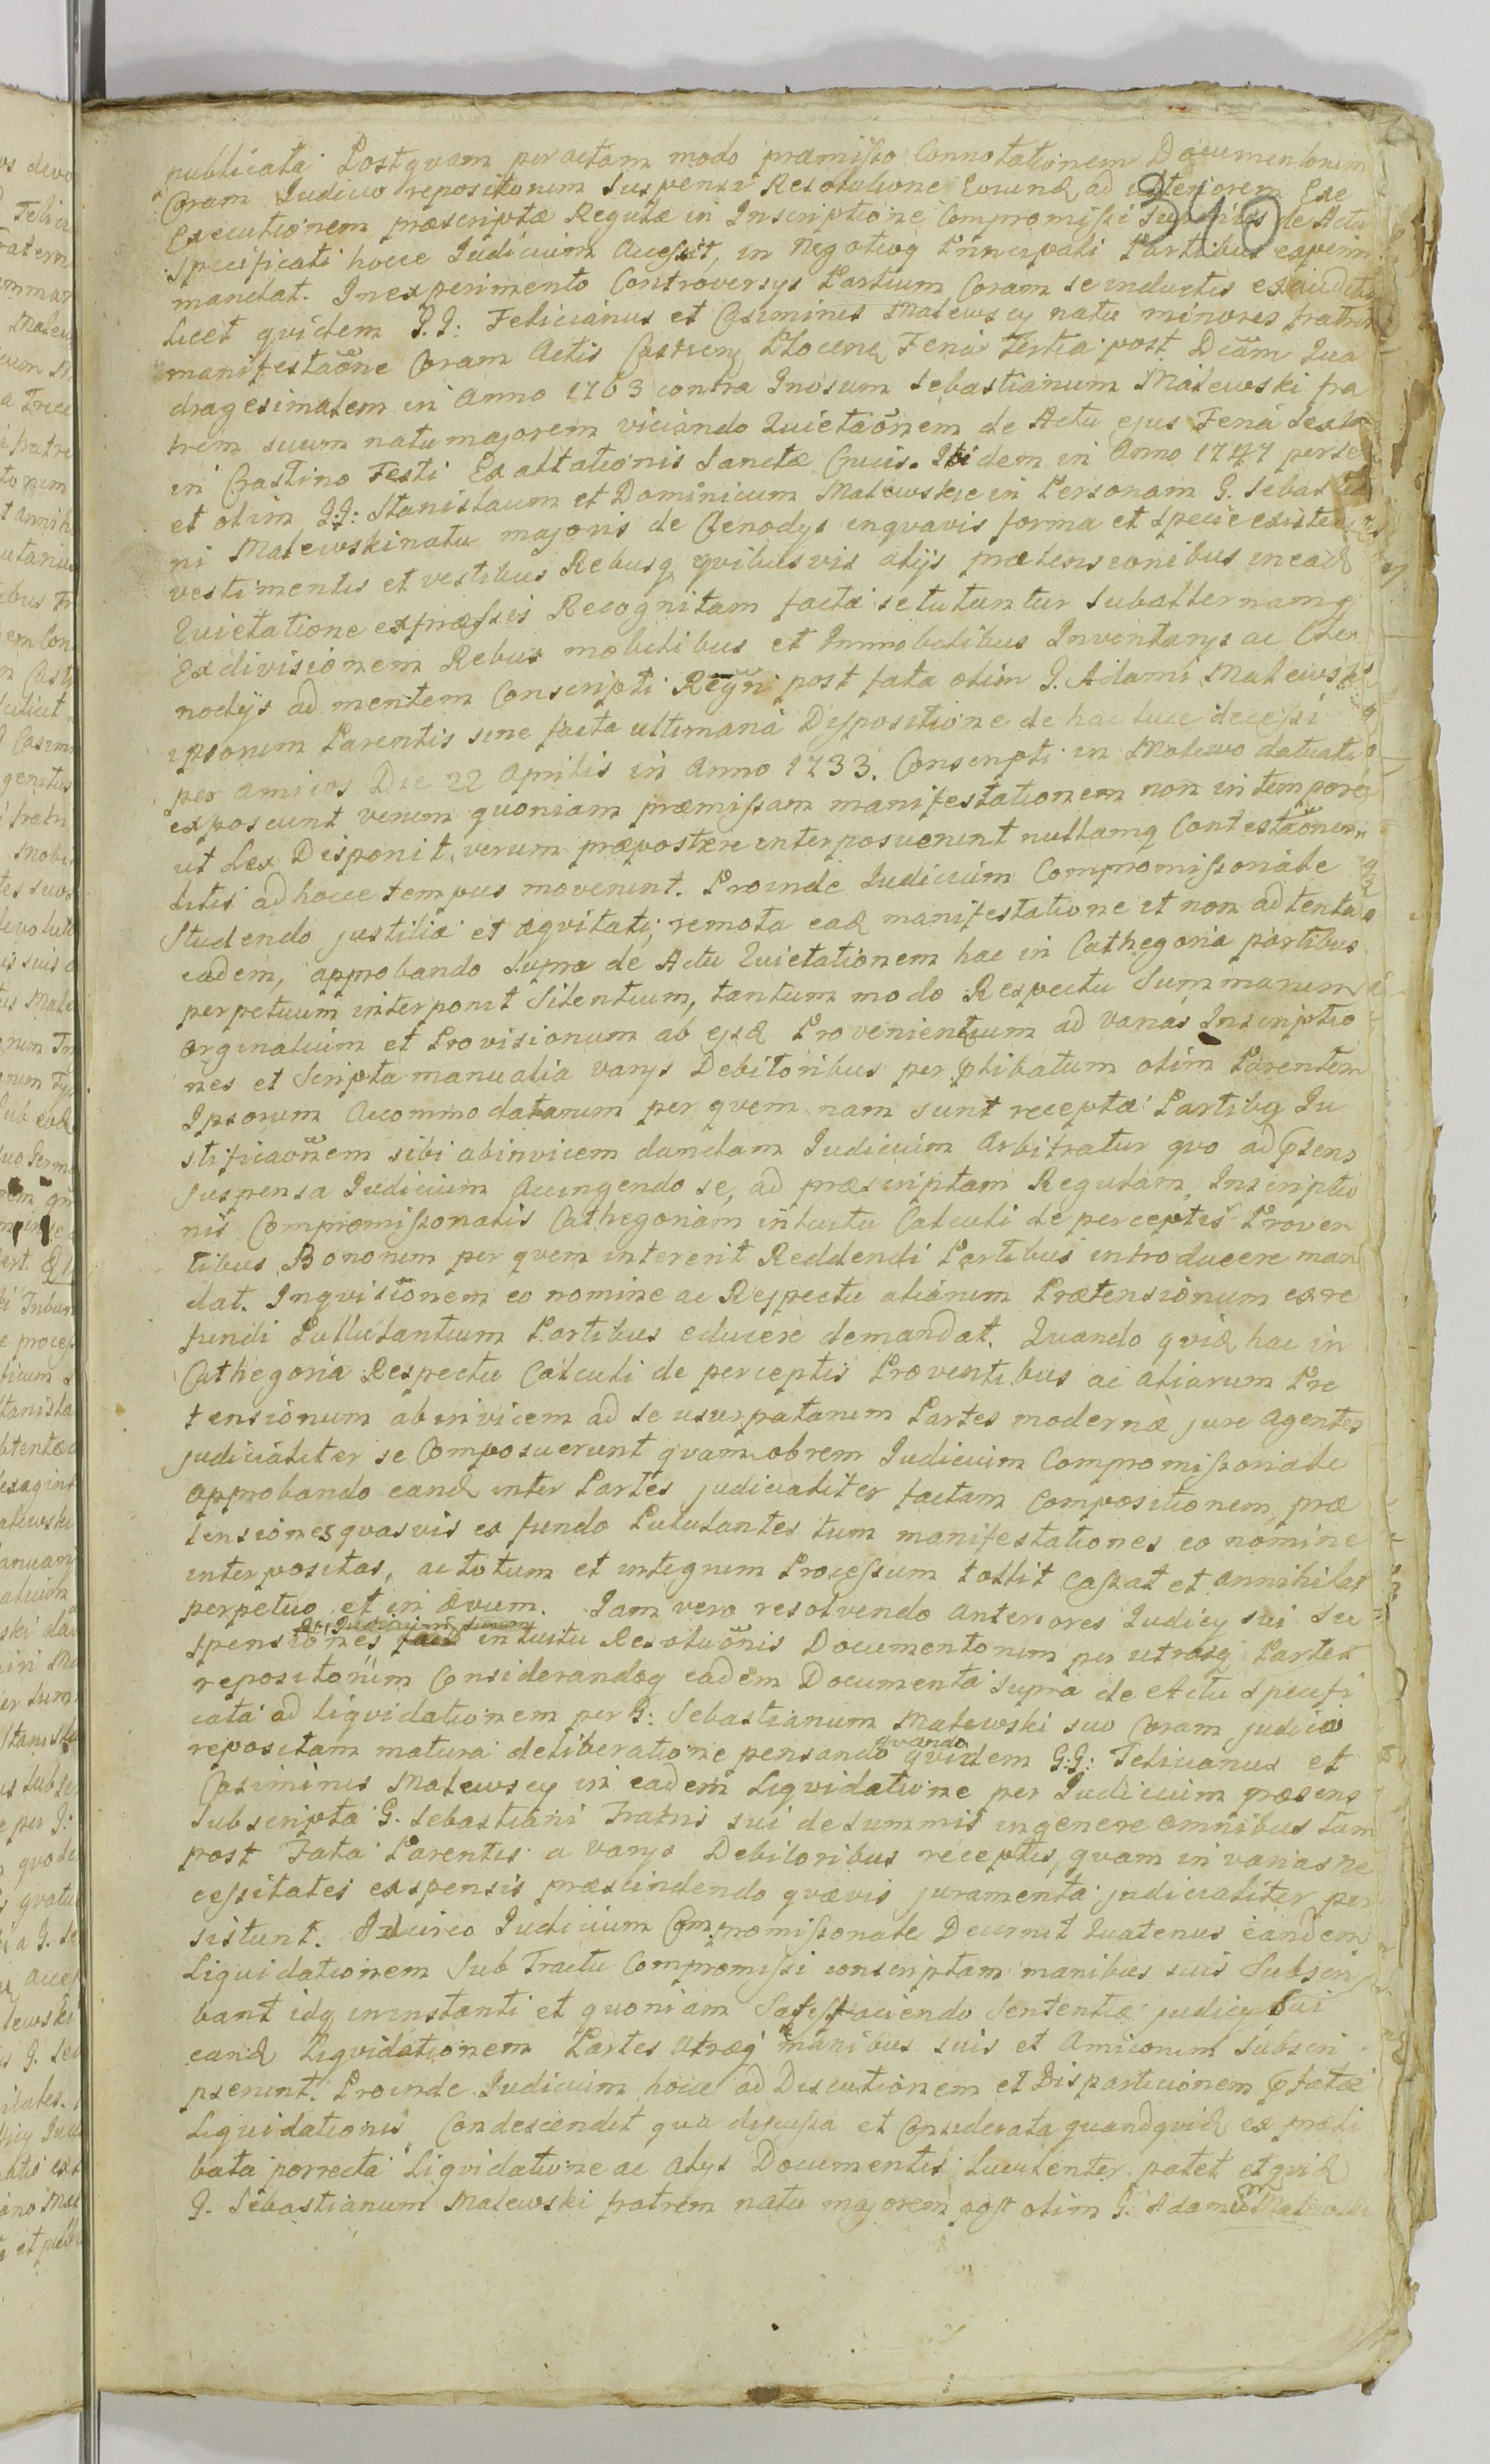 publicata. Postqvam peractam modo præmisso Connotationem Documentorum
Coram Judicio repositorum Suspensa Resolutione Eorund ad ulteriorem Exe
310
Executionem præscriptæ Regulæ in Inscriptione Compromissi de Actu
specificati hocce Judicium Accessit, in Negotioq Principali Partibus experim
mandat. In experimento Controversys Partium Coram se inductis exauditis
Licet qvidem G.G: Felicianus et Casimirus Malewscy natu minores fratres
manifestaõne Coram Actis Castren Plocen Feria Tertia post Dcam Qua
dragesimalem in Anno 1763 contra Gnosum Sebastianum Malewski fra
trem suum natu majorem viciando Quietaõnem de Actu ejus Feria Sexta
in Crastino Festi Exaltationis Sanctæ Crucis. Ibidem in Anno 1747 per se
et olim G.G: Stanislaum et Dominicum Malewskie in Personam G. Sebastia
ni Malewski natu majoris de Clenodys inqvavis forma et specie existen
vestimentis et vestibus Rebusq qvibusvis alijs prætensionibus in ead
Quietatione expressis Recognitam facta se tutuntur Subalternamq
Exdivisionem Rebus mobilibus et Immobilibus Inventarys ac Cle
nodijs ad mentem Conscripti Regri post fata olim G. Adami Malewski
ipsorum Parentis sine facta ultimaria Dispositione de hac luce decessi
per amicos Die 22 Aprilis in Anno 1733. Conscripti in Malewo
exposcunt verum quoniam præmissam manifestationem non in tempore
ut Lex Disponit, verum præpostere interposuerunt nullamq Contestaõnem
Litis ad hocce tempus moverunt. Proinde Judicium Compromissoriale
Studendo justitiæ et æqvitati, remota ead manifestatione et non ad tenta
eadem, approbando Supra de Actu Quietationem hac in Cathegoria partibus
perpetuum interponit Silentium, tantum modo Respectu Summarum
orginalium et Provisionum ab ejsd Provenientium ad varias Inscriptio
nes et Scripta manualia varys Debitoribus per ptibatum olim Parentem
Ipsorum Accommodatarum per qvem nam sunt receptæ Partibq Ju
stificaõnem sibi abinvicem dandam Judicium Arbitratur qvo ad psens
Suspensa Judicium Accingendo se, ad præscriptam Regulam, Inscriptio
nis Compromissorialis Cathegoriam intuitu Calculi de perceptis Proven
tibus Bonorum per qvem intererit Reddendi Partibus introducere man
dat. Inqvisiõnem eo nomine ac Respectu aliarum Prætensionum ex re
fundi Pullulantium Partibus educere demandat. Quando qvid hac in
Cathegoria Respectu Calculi de perceptis Proventibus ac aliarum Pre
tensionum abinvicem ad se usurpatarum Partes modernæ jure Agentes
judicialiter se Composuerunt qvamobrem Judicium Compromissoriale
Approbando eand inter Partes judicialiter factam Compositionem, præ
tensiones qvasvis ex fundo Pullulantes tum manifestationes eo nomine
interpositas, ac totum et integrum Processum tollit Cassat et annihilat
perpetuo et in ævum. Iam vero resolvendo anteriores Judicy sui Su
Judicium suum
spensiones intuitu Resoluõnis Documentorum per utrasq Partes
repositorum Considerandoq eadem Documenta supra de Actu specifi
cata ad liqvidationem per G: Sebastianum Malewski suo Coram judicio
quando
repositam matura deliberatione pensando qvidem G.G: Felicianus et
Casimirus Malewscy in eadem Liqvidatione per Judicium præsens
Subscripta G. Sebastiani Fratris sui de summis in genere omnibus tam
post Fata Parentis a varys Debitoribus receptis, qvam in varias ne
cessitates expensis præscindendo qvævis juramenta judicialiter per
sistunt. Idcirco Judicium Compromissoriale Decernit Quatenus eandem
Liquidationem Sub Tractu Compromissi conscriptam manibus suis Subscri
bant idq in instanti et quoniam Satisfaciendo Sententiæ judicy Sui
eand Liqvidationem Partes utræq manibus suis et Amicorum Subscri
pserunt. Proinde Judicium hocce ad Discutionem et Disparticionem pfatæ
Liquidationis Condescendit qua discussa et Considerata quandqvid ex præli
bata porrecta Liqvidatione ac alys Documentis luculenter patet etqvid
G. Sebastianum Malewski fratrem natu majorem post olim G. Adamum Malewski